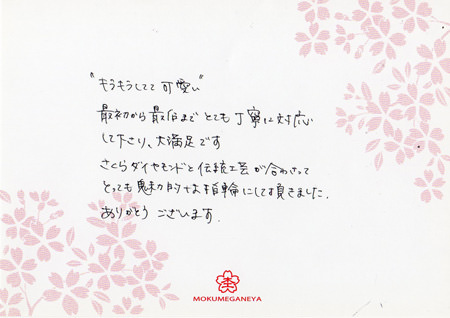 "キラキラしてて可愛い"
最初から最后まで とても丁寧に対応
して下さり、大満足です
さくらダイヤモンドと伝統工芸が合わさって
とっても魅力的な指輪にして頂きました.
ありがとう ございます.
MOKUMEGANEYA